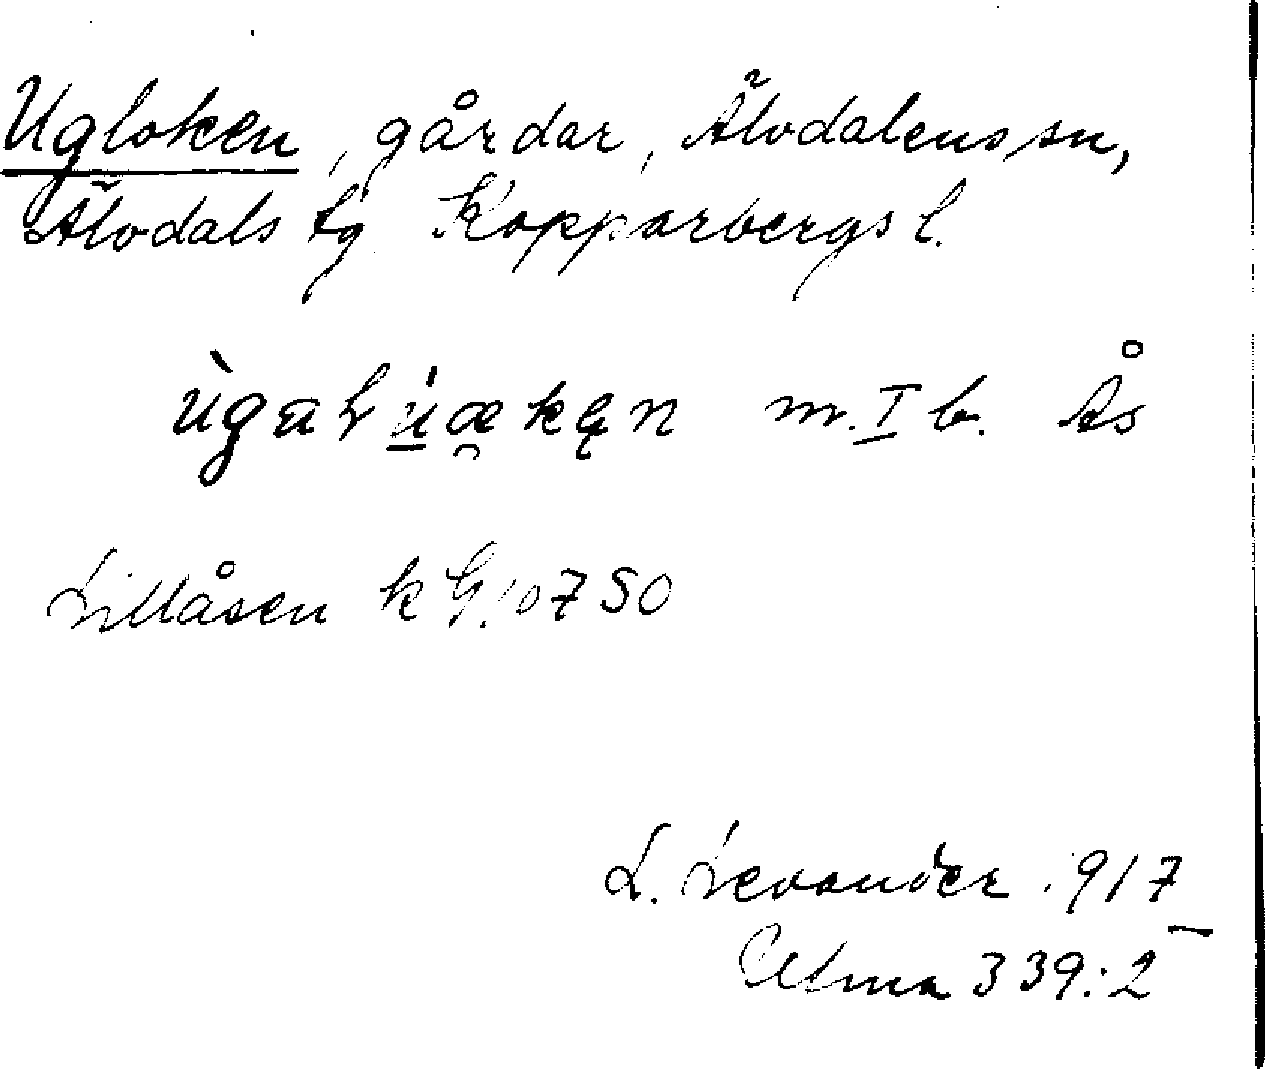 Ugloken, gårdar, Älvdalens sn,
Älvdals tg Kopparbergs l.
ùgaɫúækęn m. I b. Ås
Lillåsen k G.10750
L. Levander 1917
Ulma 339:2